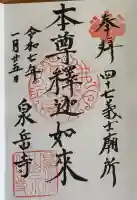 奉拝
四十七義士廟所
本尊釋迦如来
令和七年
一月廿五日
泉岳寺